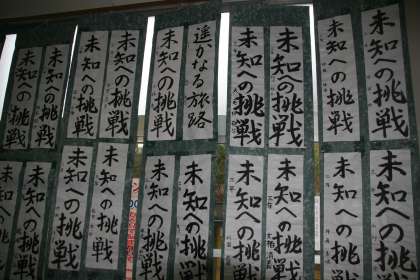 未知への挑戦
未知への挑戦
未知への挑戦
未知への挑戦
遥かなる旅路
未知への挑戦
未知への挑戦
未知への挑戦
未知への挑戦
未知への挑戦
未知への挑戦
未知への挑戦
未知への挑戦
未知への挑戦
未知への挑戦
未知への挑戦
未知への挑戦
未知への挑戦
未知への挑戦